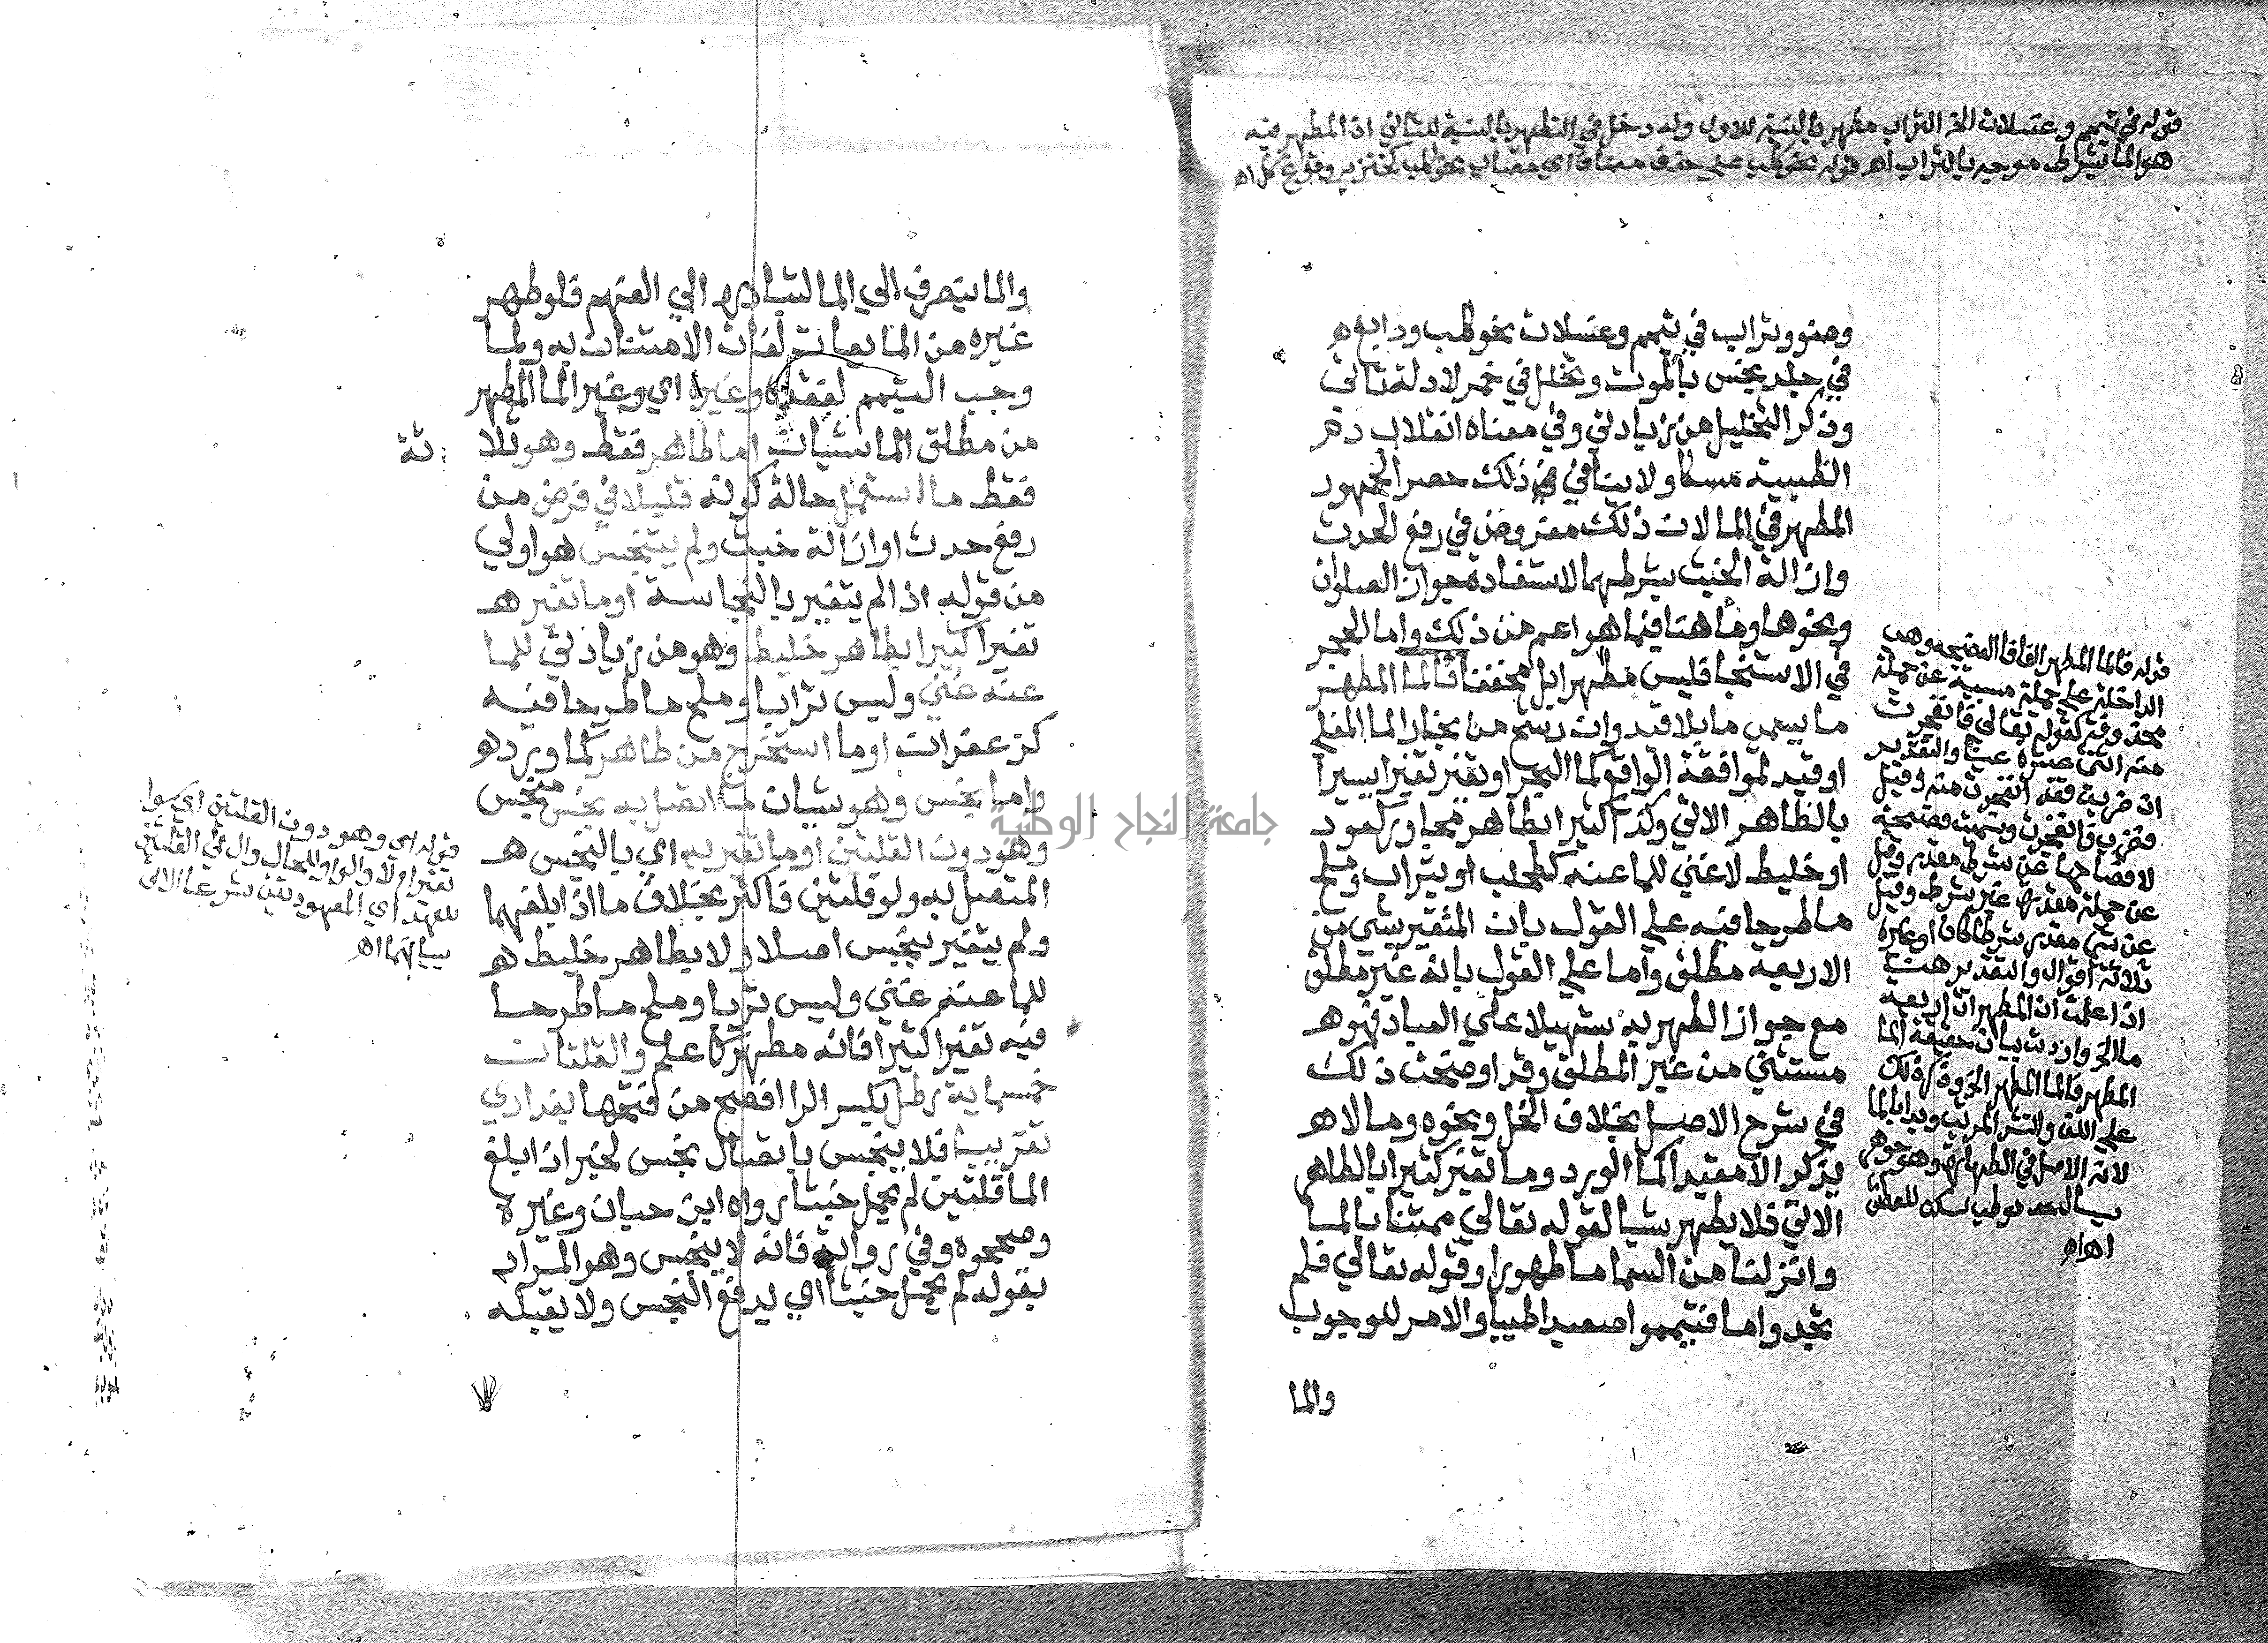 قوله في تيمم وغسلات الخ التراب مطهر بالنسبة للاول وله دخل في التطهير بالنسبة للثاني اذ المطهر فيه
هو الما بشرط مزجه بالتراب اه قوله بنحو كلب علي حذف مضاف اي مصاب بنحو كلب كخنزير وفرع كل اه
وضوء وتراب في تيمم وغسلات بنحو كلب ودابغ ه
في جلد نجس بالموت وتخلل في خمر لادلة تاتي
وذكر التخليل من زيادتي وفي معناه انقلاب دم
الظبية مسكا ولا ينافي ذلك حصر الجمهور
المطهر في الما لان ذلك مفروض في رفع الحدث
وازالة الخبث بشرطهما لاستفادة جواز الصلوات
ونحوها وما هنا فيما هو اعم من ذلك واما الحجر
في الاستنجا فليس مطهرا بل مخففا فالما المطهر
ما يسمي ما بلا قيد وان رشح من بخار الما المغلي
او قيد لموافقة الواقع كما البحر او تغير تغيرا يسيرا
بالطاهر الاتي وكذا كثيرا بطاهر مجاور كعود
او خليط لا غني للما عنه كطحلب او بتراب وملح
ما طرحا فيه علي القول بان المتغير بشي من
الاربعه مطلق واما علي القول بانه غير مطلق
مع جواز الطهر به تسهيلا علي العباد فهو ه
مستثني من غير المطلق وقد اوضحت ذلك
في شرح الاصل بخلاف الخل ونحوه وما لا ه
يذكر الا مقيدا كما الورد وما تغير كثيرا بالطاهر
الاتي فلا يطهر شيا لقوله تعالي ممتنا بالما
وانزلنا من السما ما طهورا وقوله تعالي فلم
تجدوا ما فتيمموا صعيدا طيبا والامر للوجوب
والما
قوله فالما المطهر الفا فا الفصيحة وهي
الداخلة علي جملة مسببة عن جملة
محذوفة كقوله تعالي فانفجرت
منه اثنتي عشرة عينا والتقدير
ان ضربت فقد انفجرت منه وقيل
فضرب فانفجرت وسميت فصيحة
لافصاحها عن شرط مقدر وقيل
عن جملة مقدرة غير شرط وقيل
عن شي مقدر شرطا كان او غيره
ثلاثة اقوال والتقدير هنا
اذا علمت ان المطهرات اربعة
ما الخ واردت بيان حقيقة الما
المطهر فالما المطهر الخ وذكره لك
علي اللف والنشر المرتب وبدا بالما
لانه الاصل في الطهارة وهو جوهر
للعطش
اه اه
والما ينصرف الي الما لتبادره الي الفهم فلو طهر
غيره من المايعات لفات الامتنان به ولما
وجب التيمم لفقده وغيره اي وغير الما المطهر
من مطلق الما شيان اما طاهر فقط وهو ثلا
ثة
فقط ما استعمل حالة كونه قليلا في فرض من
رفع حدث او ازالة خبث ولم يتنجس هو اولي
من قوله اذا لم يتغير بالنجاسة او ما تغير ه
تغيرا كثيرا بطاهر خليط وهو من زيادتي للما
عنه غني وليس ترابا وملح ما طرحا فيه
كزعفران او ما استخرج من طاهر كما ورد ه
واما نجس وهو شيان ما اتصل به نجس منجس
وهو دون القلتين او ما تغير به اي بالنجس ه
المتصل به ولو قلتين فاكثر بخلاف ما اذا بلغهما
ولم يتغير بنجس اصلا ولا بطاهر خليط ه
للما عنه غني وليس ترابا وملح ما طرحا
فيه تغيرا كثيرا فانه مطهر كما علم والقلتان
خمسماية رطل بكسر الرا افصح من فتحها بغدادي
تقريبا فلا ينجس باتصال نجس لخبر اذا بلغ
الما قلتين لم يحمل خبثا رواه ابن حبان وغيره
وصححوه وفي رواية فانه لا ينجس وهو المراد
بقوله لم يحمل خبثا اي يدفع النجس ولا يقبله
قوله اي وهو دون القلتين اي سوا
تغير ام لا والواو للحال وال في القلتين
للعهد اي المعهودتين شرعا الاتي
بيانهما اه
جامعة النجاح الوطنية